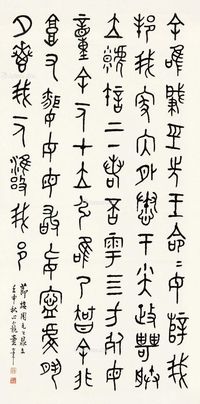 余唯肇巠先王命命女辥我
邦我家內外惷于小大政屏
立虩許上下若否雩四方死毋
童余一人才立弘唯乃智余非
庸又聞女毋敢妄寧虔夙
夕惠我一人雍我邦
節臨周毛公鼎
壬申秋日